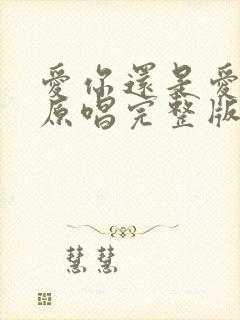 愛你還是愛
原唱完整版
慧慧